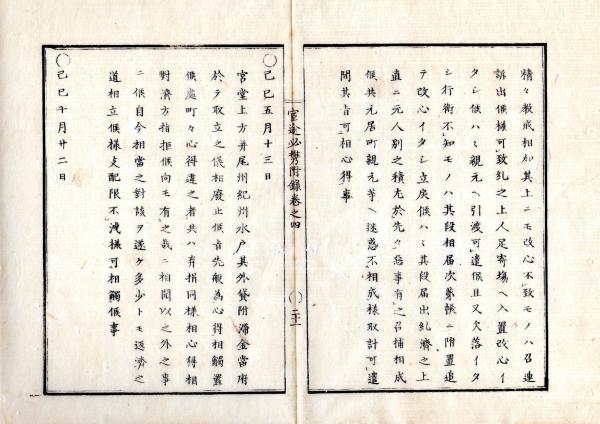 精々教戒相加其上ニモ改心不致モノハ召連
訴出候様可致糺之上人足寄場ヘ入置改心イ
タシ候ハヽ親元ヘ引渡可遣候且又欠落イタ
シ行衛不知モノハ其段相届次第帳ニ附置追
テ改心イタシ立戻候ハヽ其段届出糺濟之上
直ニ元人別之積尤於先々惡事有之召捕相成
候共元居町親元等ヘ迷惑不相成様取計可遣
間其旨可相心得事
官途必携附錄卷之四
二十一
〇己巳五月十三日
宮堂上方并尾州紀州水戸其外貸附滞金當府
於テ取立之儀相廢止候旨先般為心得相觸置
候處町々心得違之者共ハ弃捐同様相心得相
對濟方指拒候向モ有之哉ニ相聞以之外之事
ニ候自今相當之對談ヲ遂ケ多少トモ返濟之
道相立候様支配限不洩様可相觸候事
〇己巳十月廿二日